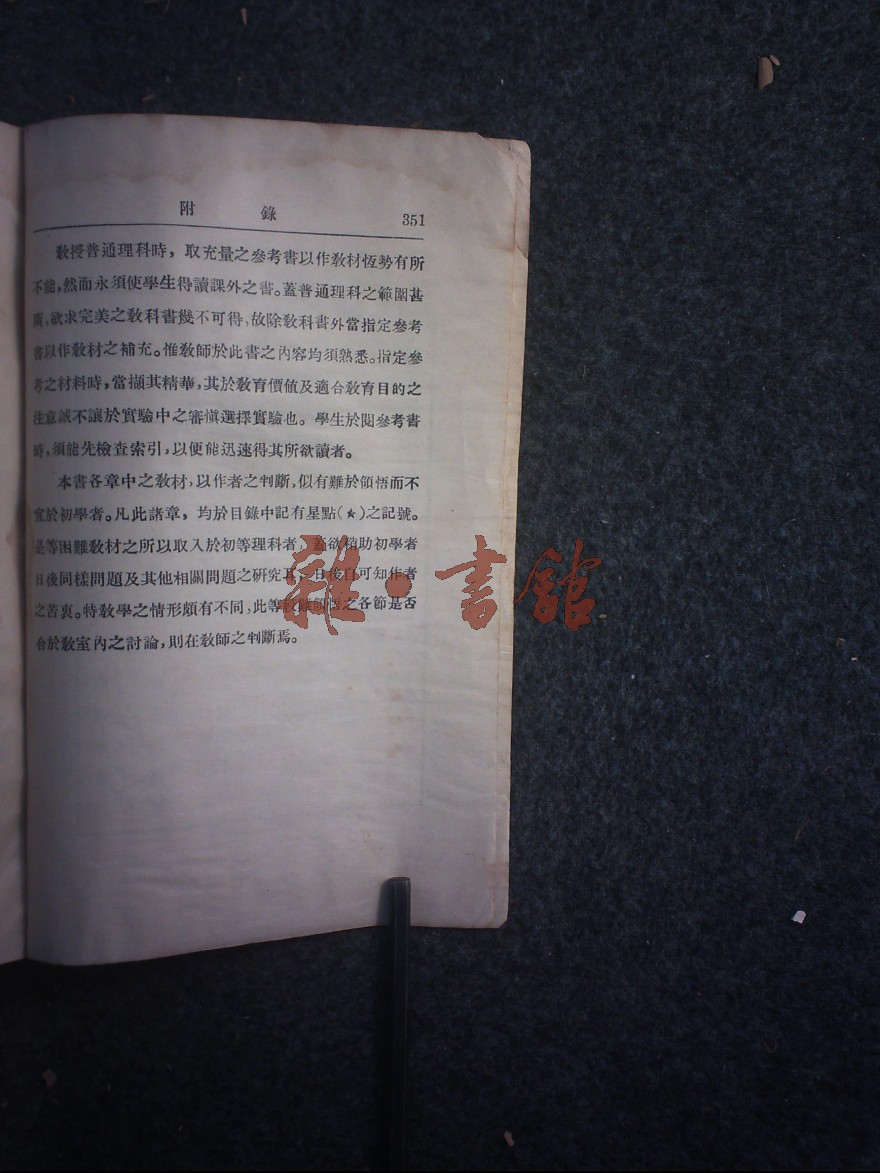 附錄 351
教授普通理科時，取充量之參考書以作教材恆勢有所
不能，然而永須使學生得讀課外之書。蓋普通理科之範圍甚
廣，欲求完美之教科書幾不可得，故除教科書外當指定參考
書以作教材之補充。惟教師於此書之內容均須熟悉。指定參
考之材料時，當擷其精華，其於教育價値及適合教育目的之
注意誠不讓於實驗中之審愼選擇實驗也。學生於閱參考書
時，須能先檢查索引，以便能迅速得其所欲讀者。
本書各章中之教材，以作者之判斷，似有難於領悟而不
宜於初學者。凡此諸章，均於目錄中記有星點（★）之記號。
是等困難教材之所以取入於初等理科者，蓋欲稍助初學者
日後同樣問題及其他相關問題之研究耳，日後自可知作者
之苦衷。特教學之情形頗有不同，此等較難領悟之各節是否
合於教室內之討論，則在教師之判斷焉。
雜·書館